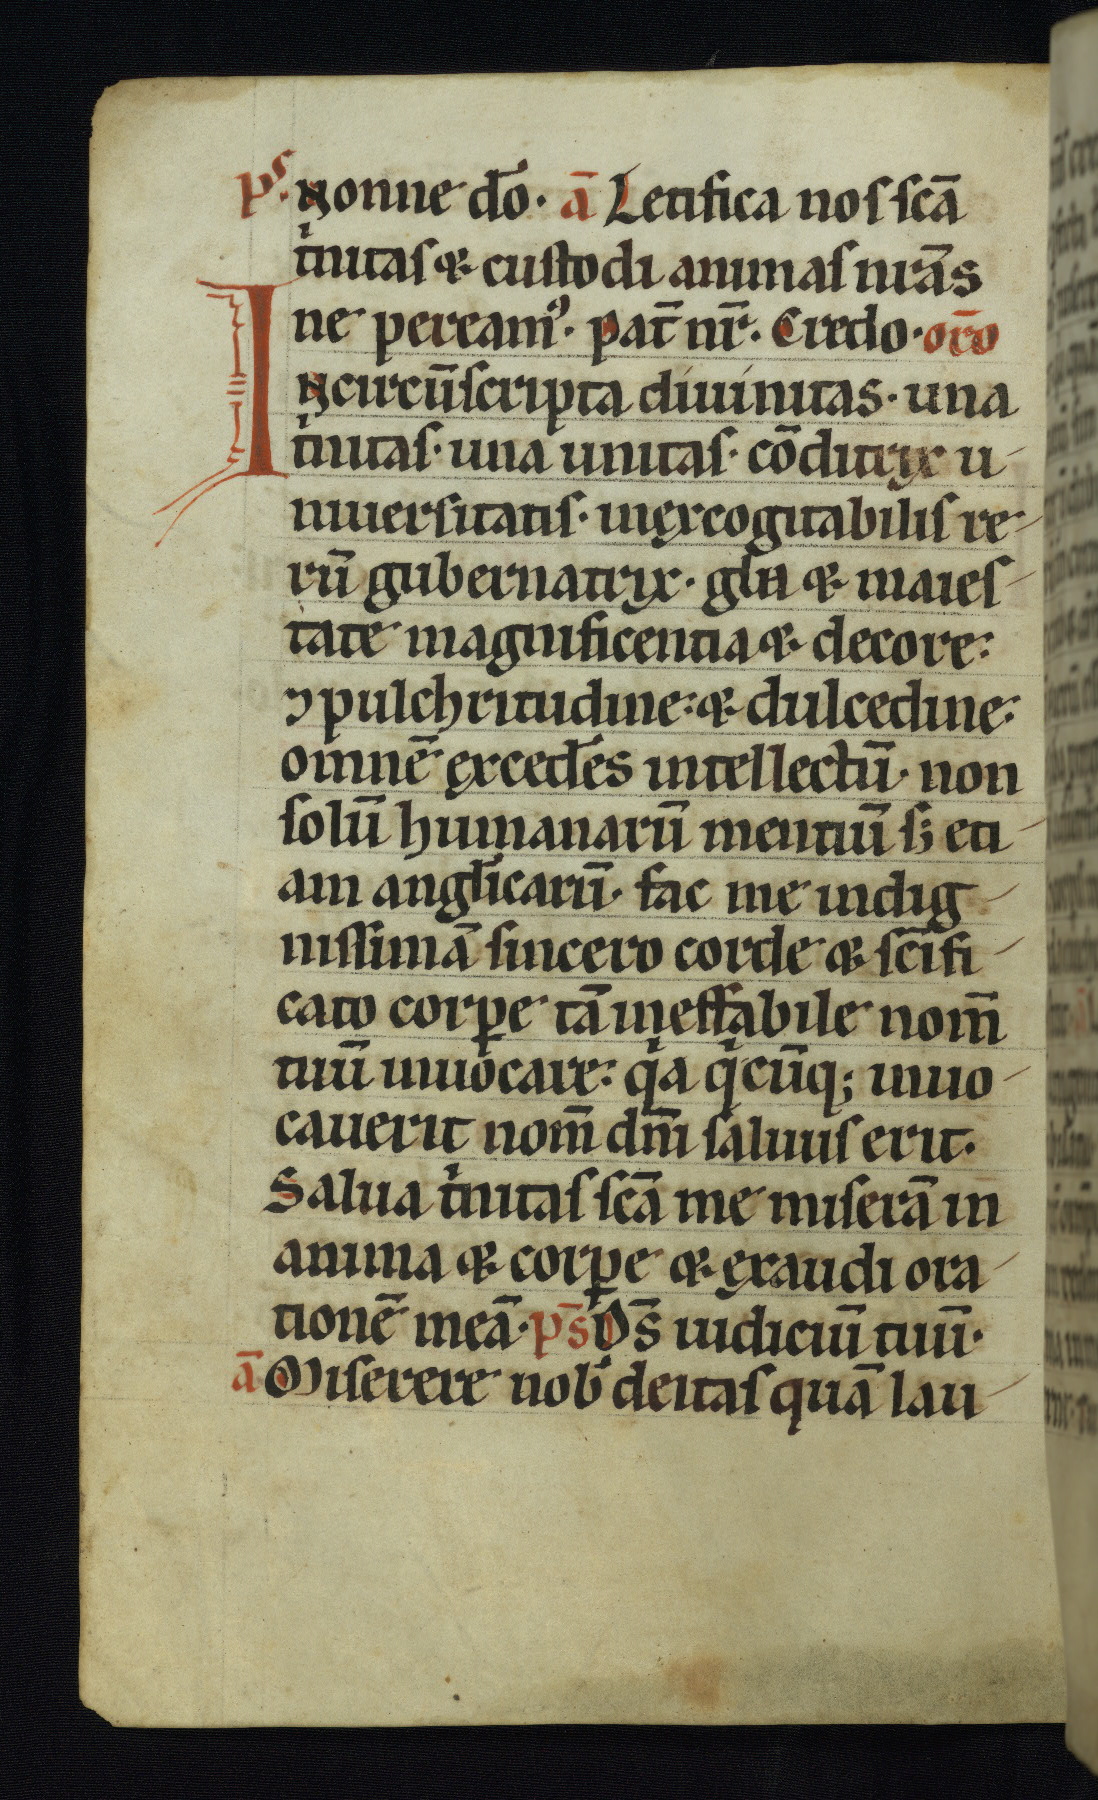 ps. Nonne dõ. ã Letifica nos scã
tͥnitas & custodi animas nrãs
ne peream᷒. pat̄ nr̄. Credo. orõ
Incircũscripta diuinitas. una
tͥnitas. una unitas. cõditrix u
niuersitatis. inexcogitabilis re
rũ gubernatrix. glã & maies
tate magnificentia & decore:
ꝯpulchritudine: & dulcedine:
omnẽ excedẽs intellectũ. non
solũ humanarũ mentiũ sꝫ eti
am angl̃icarũ. fac me indig
nissimã sincero corde & scĩfi
cato corꝑe tã ineffabile nom̃
tuũ inuocare: qͥa qͥcũqꝫ inuo
cauerit nom̃ dñi saluus erit.
Salua tͥnitas scã me miserã in
anima & corꝑe & exaudi ora
tionẽ meã. ps̄ Ds̄ iudiciũ tuũ.
ã Miserere nob̃ deitas quã lau